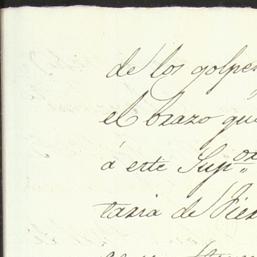 de los golpe
el brazo que
á este Sup.or
taria de Vie